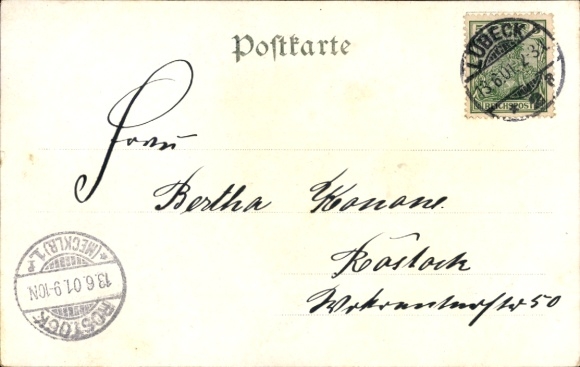 Postkarte
LÜBECK
13.6.01. 2-3N
REICHSPOST
Frau
Bertha Konone.
Rostock
Wokrenterstr 50
ROSTOCK
13.6.01.9-10N
*(MECKLB)1.*